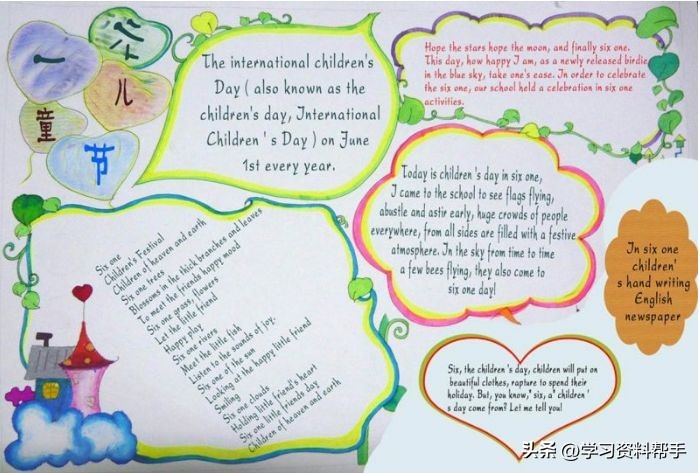 六
一
儿
童
节
The international children's
Day ( also known as the
children's day, International
Children ' s Day ) on June
1st every year.
Hope the stars hope the moon, and finally six one.
This day, how happy I am, as a newly released birdie
in the blue sky, take one's ease. In order to celebrate
the six one, our school held a celebration in six one
activities.
Today is children 's day in six one,
I came to the school to see flags flying,
abustle and astir early, huge crowds of people
everywhere, from all sides are filled with a festive
atmosphere. In the sky from time to time
a few bees flying, they also come to
six one day!
In six one
children'
s hand writing
English
newspaper
Six one
Children's Festival
Children of heaven and earth
Six one trees
Blossoms in the thick branches and leaves
To meet the friends happy mood
Six one grass, flowers
Let the little friend
Happy play
Six one rivers
Meet the little fish
Listen to the sounds of joy.
Six one of the sun
Looking at the happy little friend
Smiling
Six one clouds
Holding little friend's heart
Six one little friends day
Children of heaven and earth
Six, the children 's day, children will put on
beautiful clothes, rapture to spend their
holiday. But, you know,' six, a' children '
s day come from? Let me tell you!
头条 @学习资料帮手